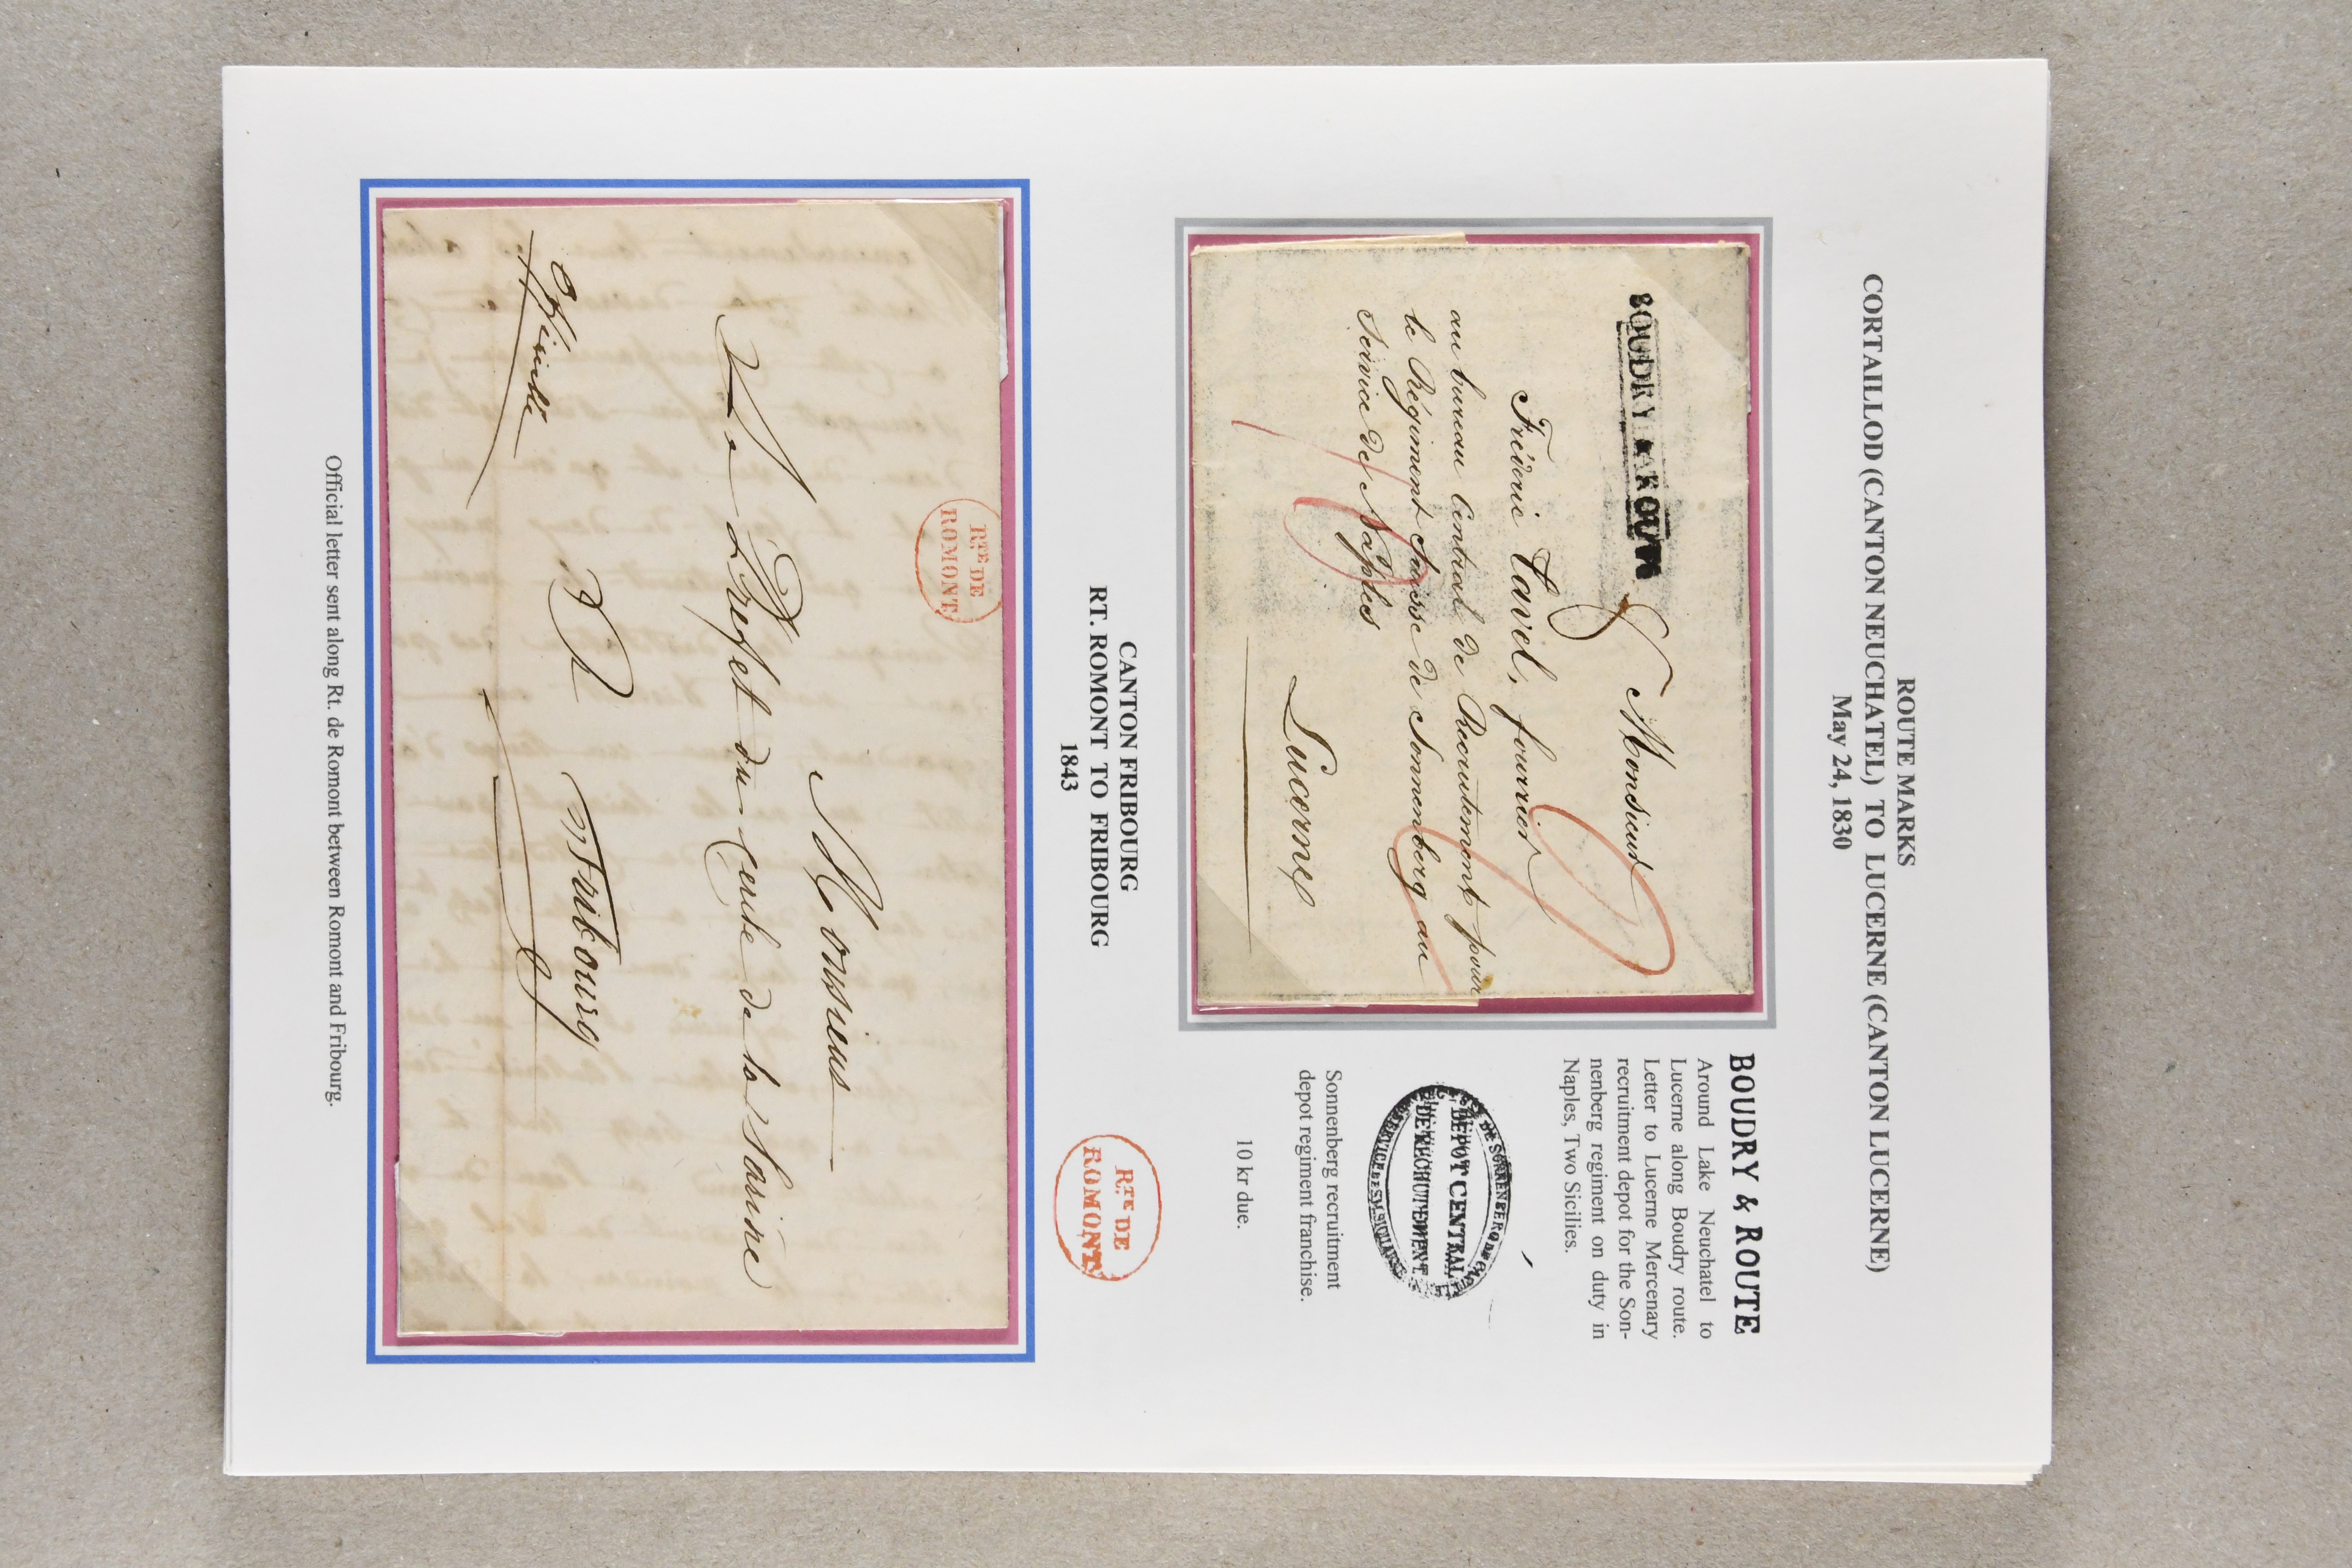 ROUTE MARKS
CORTAILLOD (CANTON NEUCHATEL) TO LUCERNE (CANTON LUCERNE)
May 24, 1830
BOUDRY & ROUTE
Monsieur
Fréderic Tavel, fourrier
au bureau Central de Recrutement pour
le Régiment Suisse de Sonnenberg au
Service de Naples
Lucerne
BOUDRY & ROUTE
Around Lake Neuchatel to
Lucerne along Boudry route.
Letter to Lucerne Mercenary
recruitment depot for the Son-
nenberg regiment on duty in
Naples, Two Sicilies.
DEPOT CENTRAL
DE RECRUTEMENT
Sonnenberg recruitment
depot regiment franchise.
10 kr due.
CANTON FRIBOURG
RT. ROMONT TO FRIBOURG
1843
RTE DE
ROMONT
RTE DE
ROMONT
Monsieur
Le Préfet du Cercle de la Sarine
à Fribourg
Officielle
Official letter sent along Rt. de Romont between Romont and Fribourg.